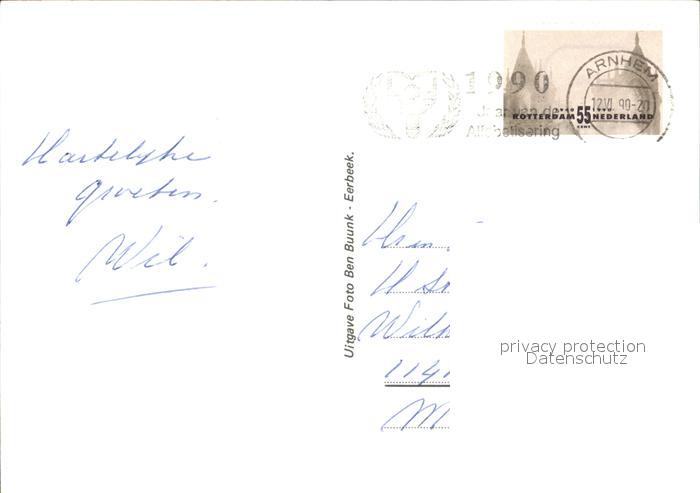 Hartelijke
groeten.
Wil.
Uitgave Foto Ben Buunk - Eerbeek.
1990
Jaar van de
Alfabetisering
ARNHEM
12.VI. 90-20
ROTTERDAM 55 NEDERLAND
CENT
H
114
M
privacy protection
Datenschutz